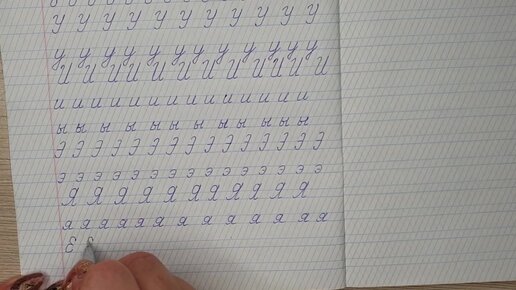 У У У У У У У У У У У
у у у у у у у у у у у у у
И И И И И И И И И И И И
и и и и и и и и и и и и и и
ы ы ы ы ы ы ы ы ы ы ы ы
Э Э Э Э Э Э Э Э Э Э Э Э Э Э
э э э э э э э э э э э э э э э
Я Я Я Я Я Я Я Я Я Я
я я я я я я я я я я я я я
Е